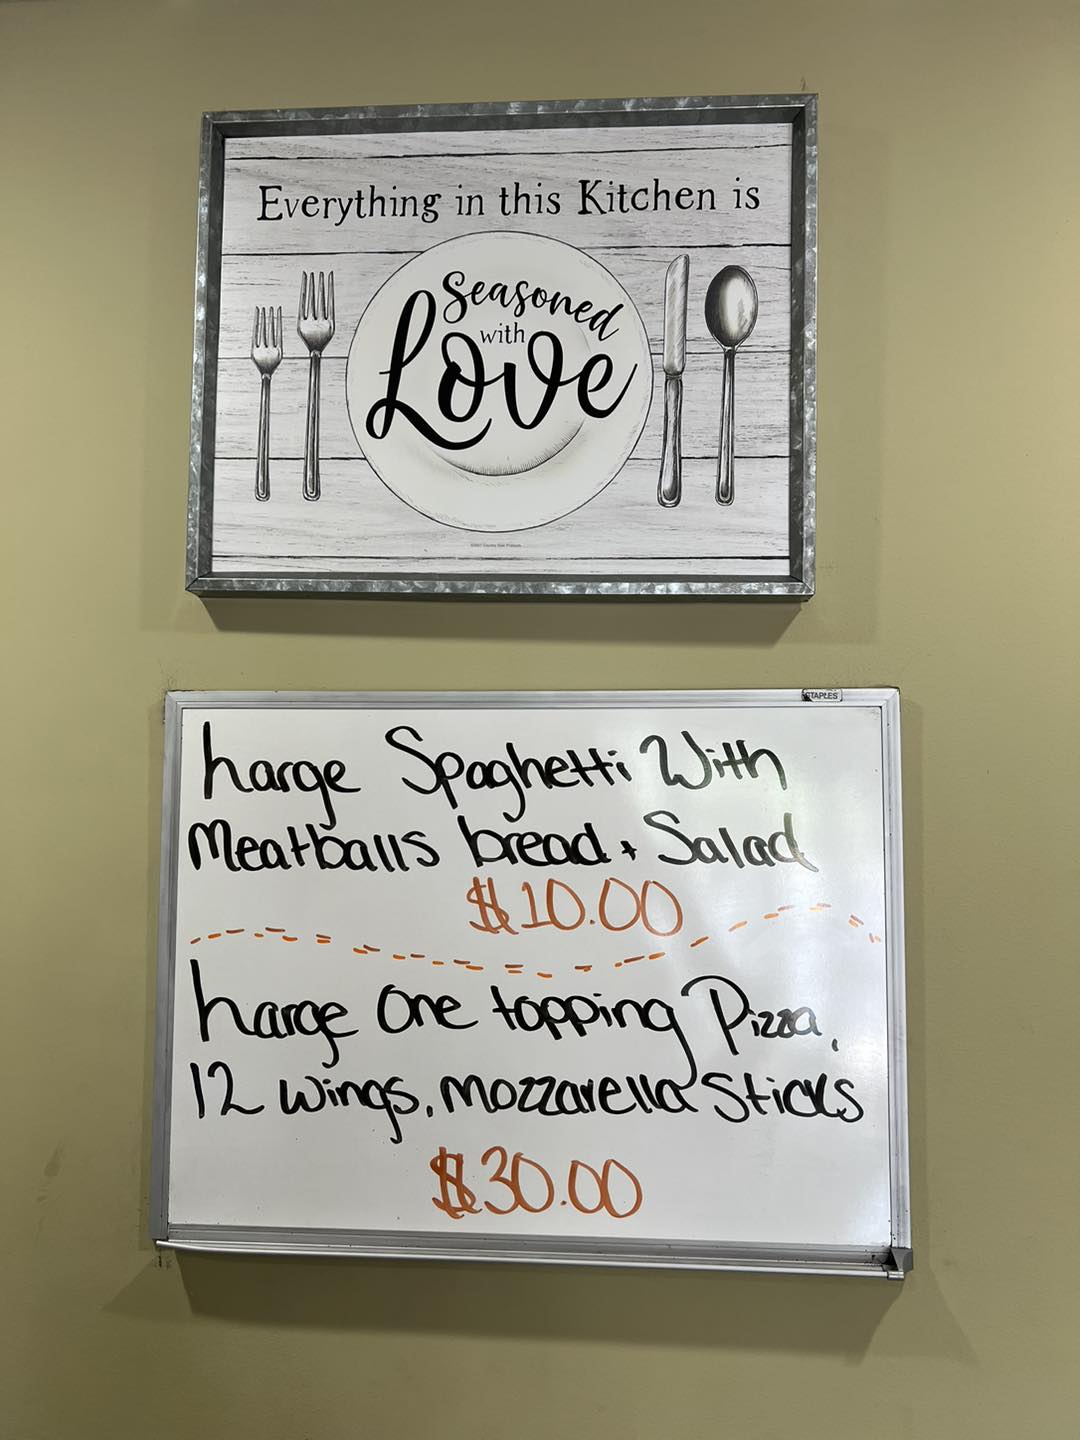 Everything in this Kitchen is
Seasoned
with
Love
STAPLES
Large Spaghetti With
Meatballs bread + Salad
$10.00
Large One topping Pizza,
12 wings, Mozzarella Sticks
$30.00